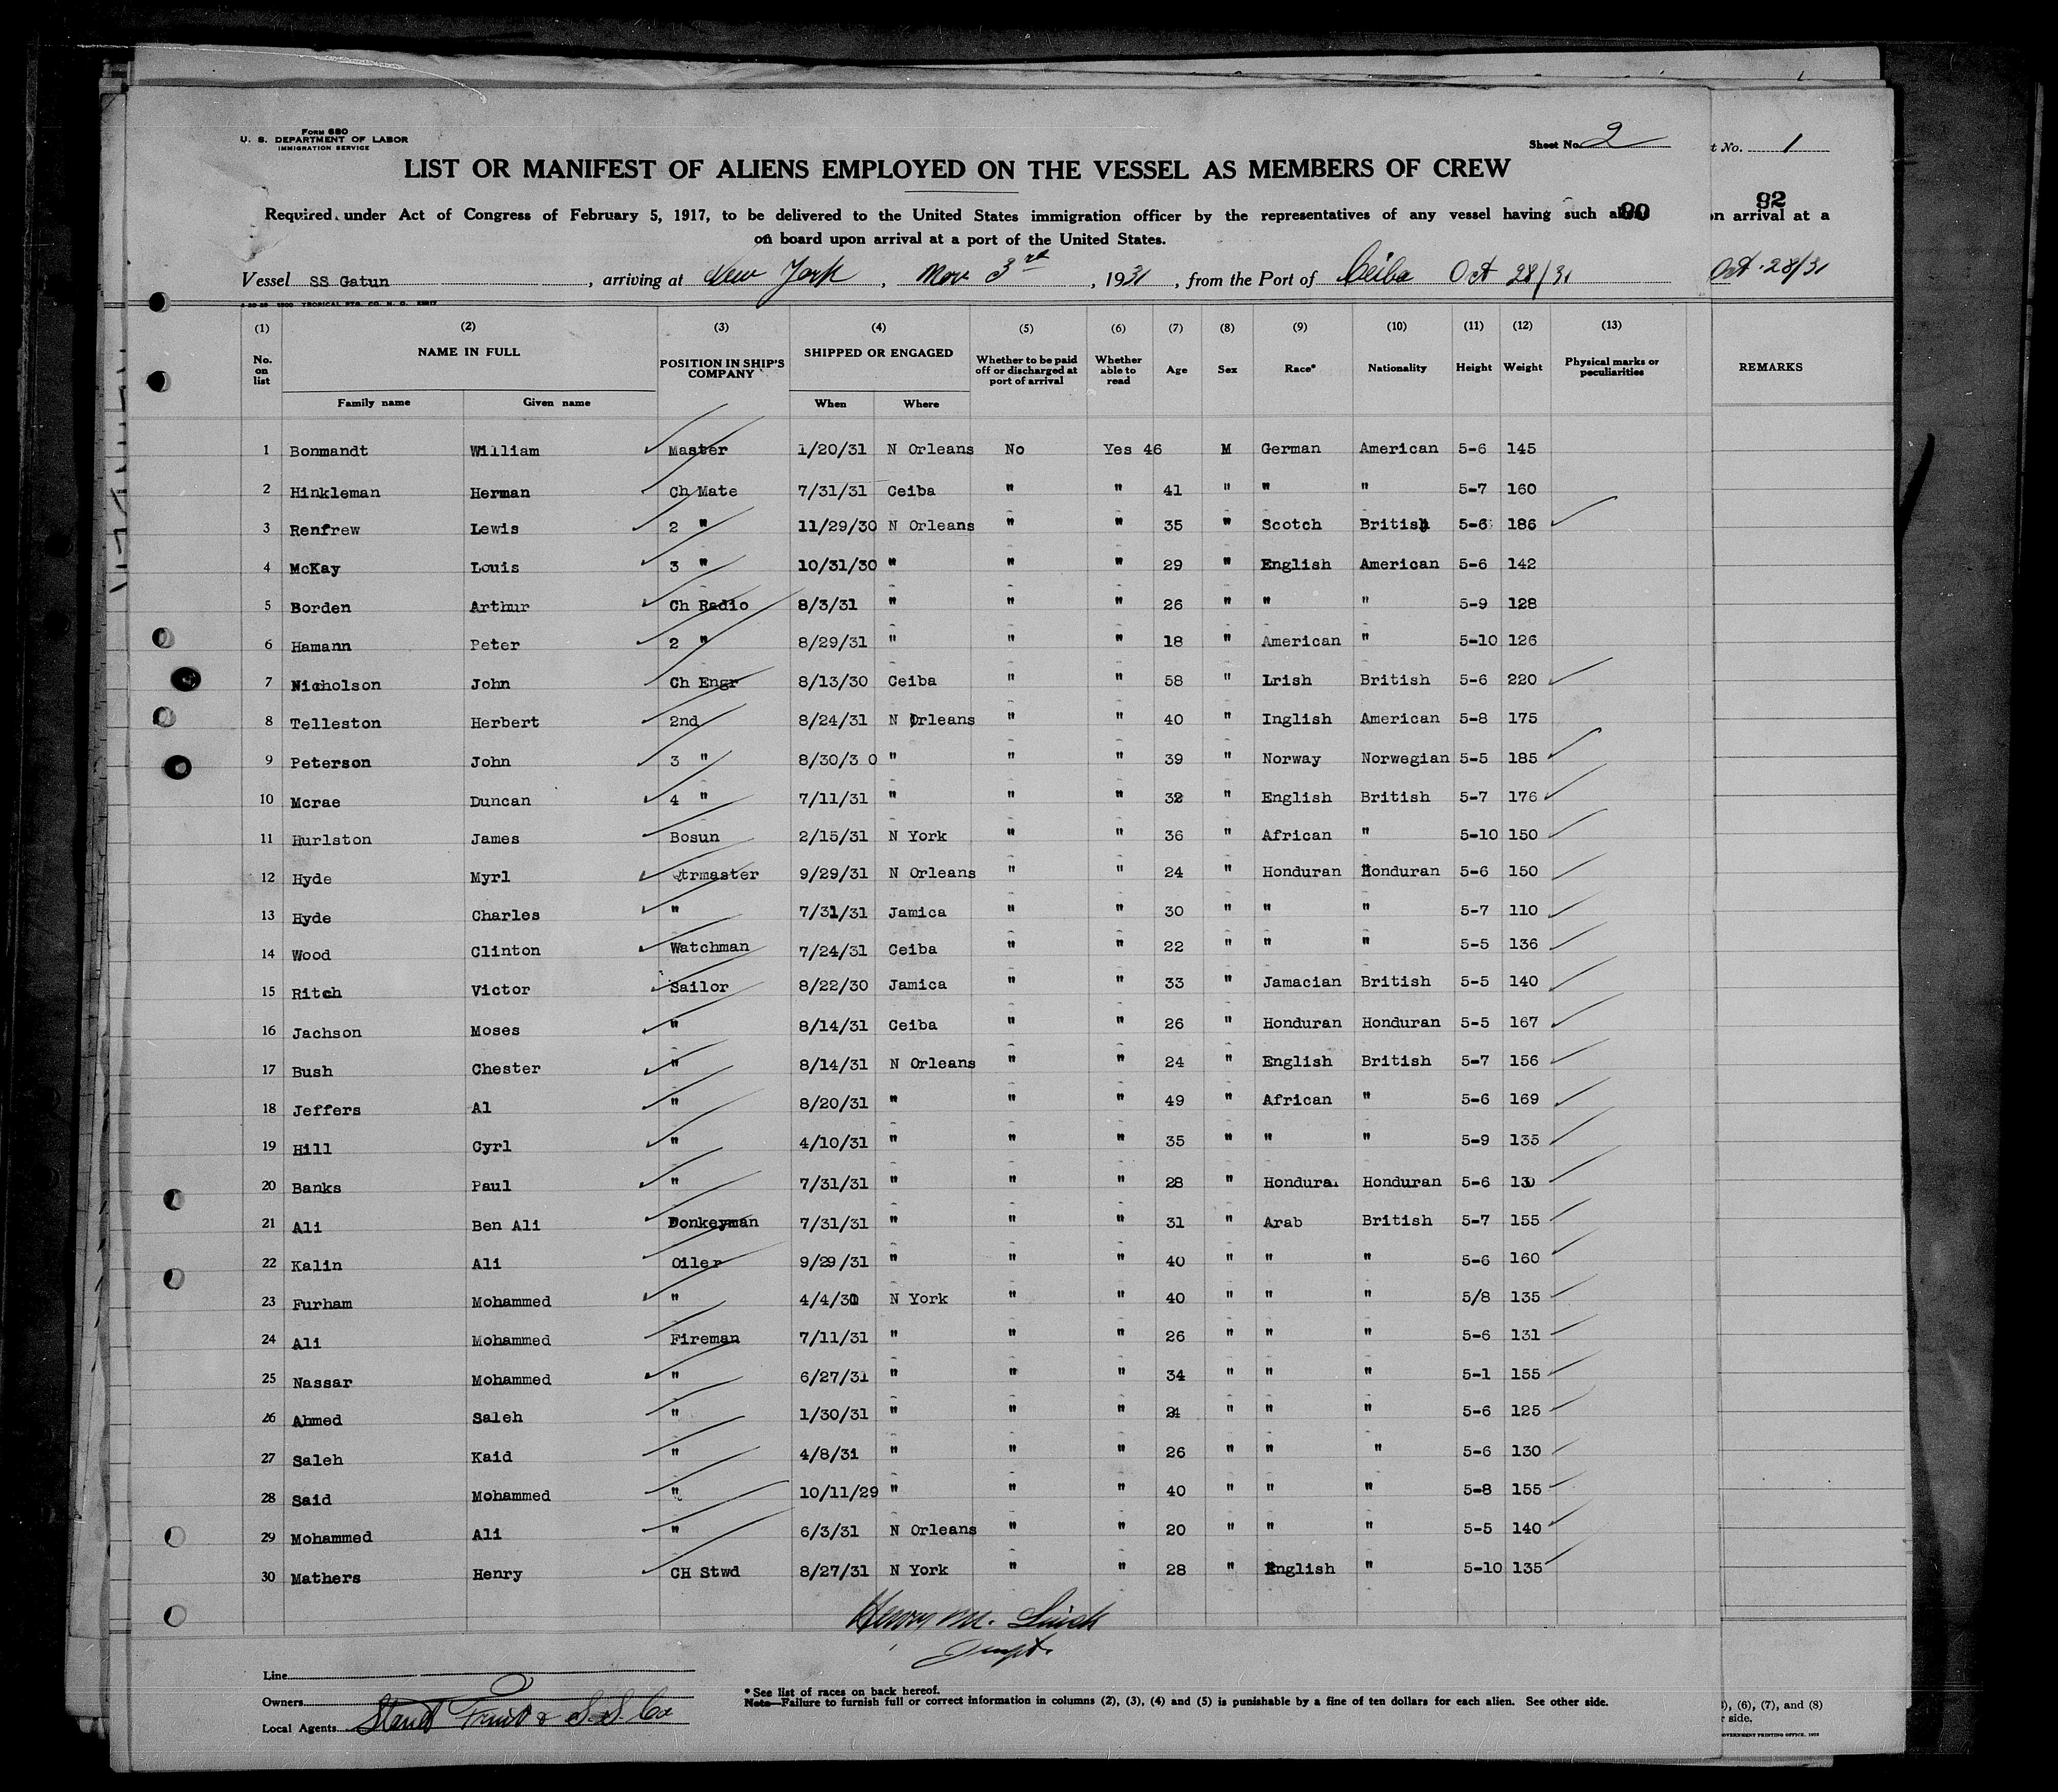 FORM 680
U. S. DEPARTMENT OF LABOR
IMMIGRATION SERVICE
Sheet No. 2
t No. 1
LIST OR MANIFEST OF ALIENS EMPLOYED ON THE VESSEL AS MEMBERS OF CREW
92
Required under Act of Congress of February 5, 1917, to be delivered to the United States immigration officer by the representatives of any vessel having such
on board upon arrival at a port of the United States.
n arrival at a
Vessel SS Gatun, arriving at New York, Nov 3rd, 1931, from the Port of Ceiba Oct 28/31
Oct. 28/31
(1) (2) (3) (4) (5) (6) (7) (8) (9) (10) (11) (12) (13)
No. on list NAME IN FULL POSITION IN SHIP'S COMPANY SHIPPED OR ENGAGED Whether to be paid off or discharged at port of arrival Whether able to read Age Sex Race* Nationality Height Weight Physical marks or peculiarities REMARKS
Family name Given name When Where
1 Bonmandt William Master 1/20/31 N Orleans No Yes 46 M German American 5-6 145
2 Hinkleman Herman Ch Mate 7/31/31 Ceiba " " 41 " " " 5-7 160
3 Renfrew Lewis 2 " 11/29/30 N Orleans " " 35 " Scotch British 5-6 186
4 McKay Louis 3 " 10/31/30 " " " 29 " English American 5-6 142
5 Borden Arthur Ch Radio 8/3/31 " " " 26 " " " 5-9 128
6 Hamann Peter 2 " 8/29/31 " " " 18 " American " 5-10 126
7 Nicholson John Ch Engr 8/13/30 Ceiba " " 58 " Lrish British 5-6 220
8 Telleston Herbert 2nd 8/24/31 N Orleans " " 40 " Inglish American 5-8 175
9 Peterson John 3 " 8/30/3 0 " " " 39 " Norway Norwegian 5-5 185
10 Mcrae Duncan 4 " 7/11/31 " " " 32 " English British 5-7 176
11 Hurlston James Bosun 2/15/31 N York " " 36 " African " 5-10 150
12 Hyde Myrl Qtrmaster 9/29/31 N Orleans " " 24 " Honduran Honduran 5-6 150
13 Hyde Charles " 7/31/31 Jamica " " 30 " " " 5-7 110
14 Wood Clinton Watchman 7/24/31 Ceiba " " 22 " " " 5-5 136
15 Ritch Victor Sailor 8/22/30 Jamica " " 33 " Jamacian British 5-5 140
16 Jachson Moses " 8/14/31 Ceiba " " 26 " Honduran Honduran 5-5 167
17 Bush Chester " 8/14/31 N Orleans " " 24 " English British 5-7 156
18 Jeffers Al " 8/20/31 " " " 49 " African " 5-6 169
19 Hill Cyrl " 4/10/31 " " " 35 " " " 5-9 135
20 Banks Paul " 7/31/31 " " " 28 " Honduran Honduran 5-6 130
21 Ali Ben Ali Donkeyman 7/31/31 " " " 31 " Arab British 5-7 155
22 Kalin Ali Oiler 9/29/31 " " " 40 " " " 5-6 160
23 Furham Mohammed " N York " " 40 " " " 5/8 135
24 Ali Mohammed Fireman 7/11/31 " " " 26 " " " 5-6 131
25 Nassar Mohammed " 6/27/31 " " " 34 " " " 5-1 155
26 Ahmed Saleh " 1/30/31 " " " 24 " " " 5-6 125
27 Saleh Kaid " 4/8/31 " " " 26 " " " 5-6 130
28 Said Mohammed " 10/11/29 " " " 40 " " " 5-8 155
29 Mohammed Ali " 6/3/31 N Orleans " " 20 " " " 5-5 140
30 Mathers Henry CH Stwd 8/27/31 N York " " 28 " English " 5-10 135
Henry M.
Line
Owners
Local Agents Stand Fruit & S.S. Co
* See list of races on back hereof.
Note—Failure to furnish full or correct information in columns (2), (3), (4) and (5) is punishable by a fine of ten dollars for each alien. See other side.
), (6), (7), and (8)
r side.
GOVERNMENT PRINTING OFFICE